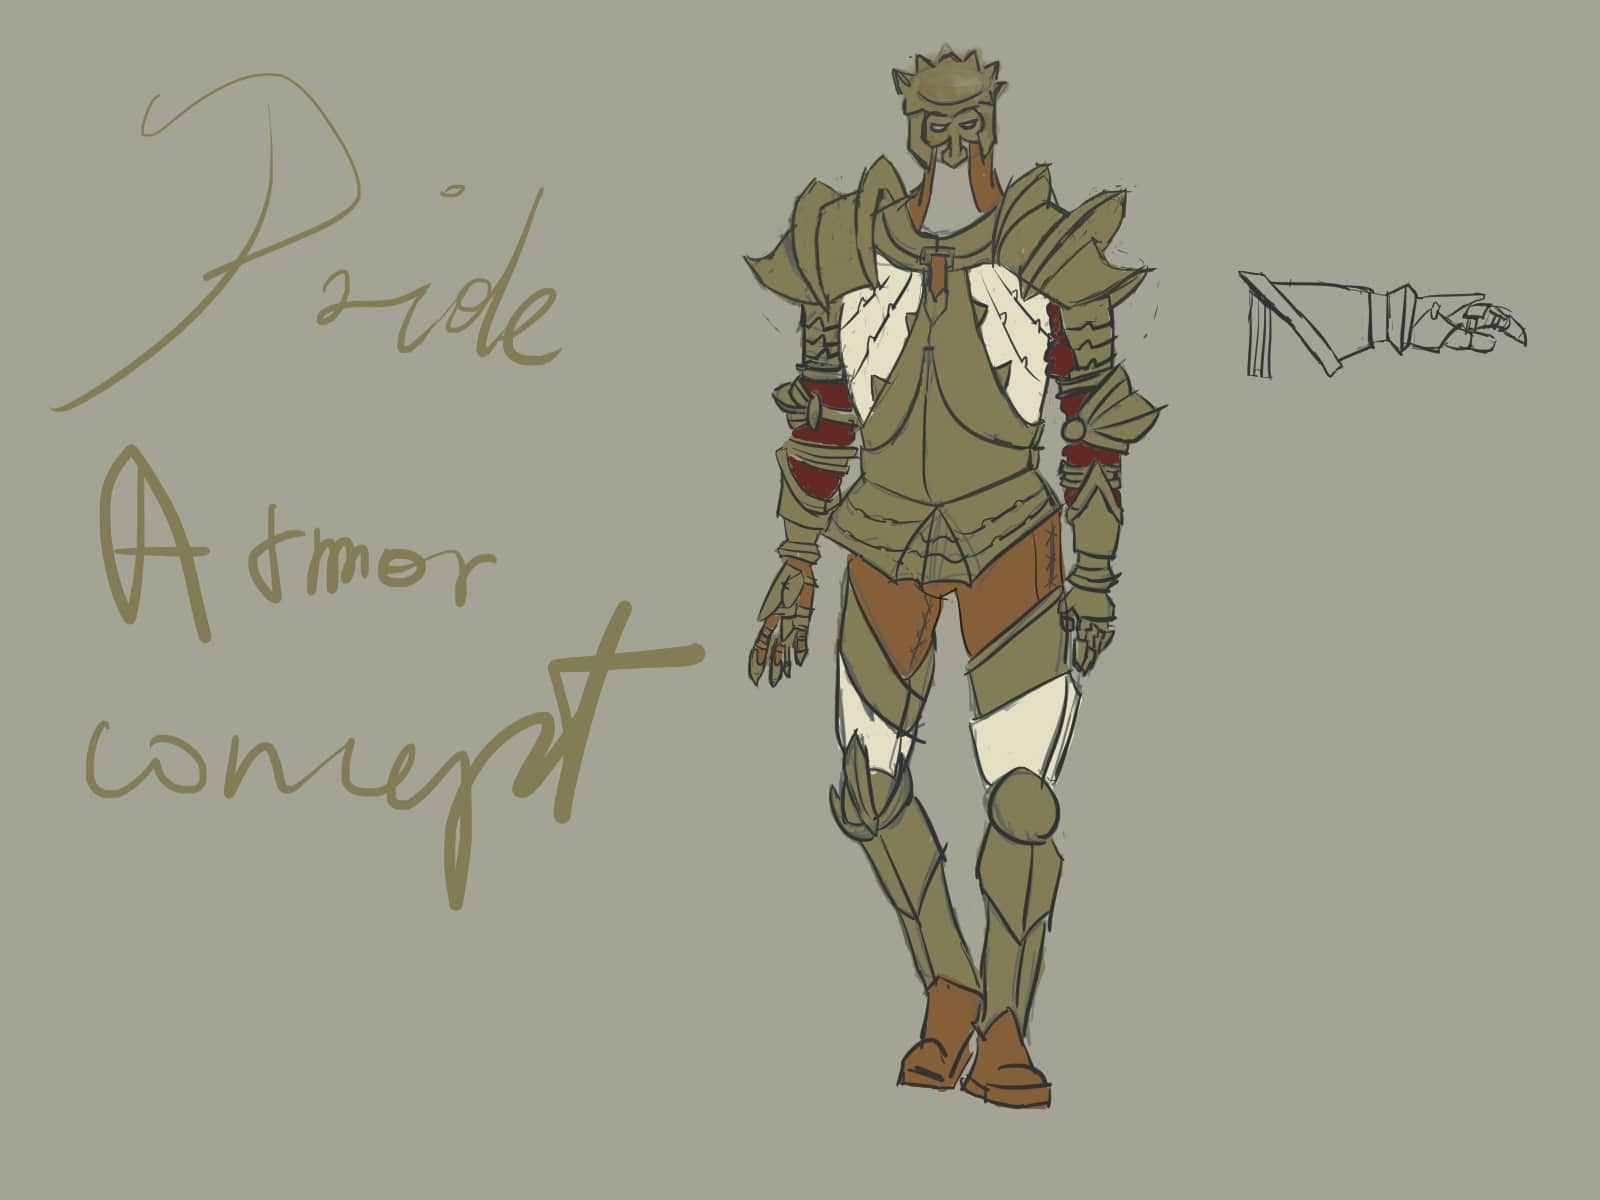 Pride
Armor
concept